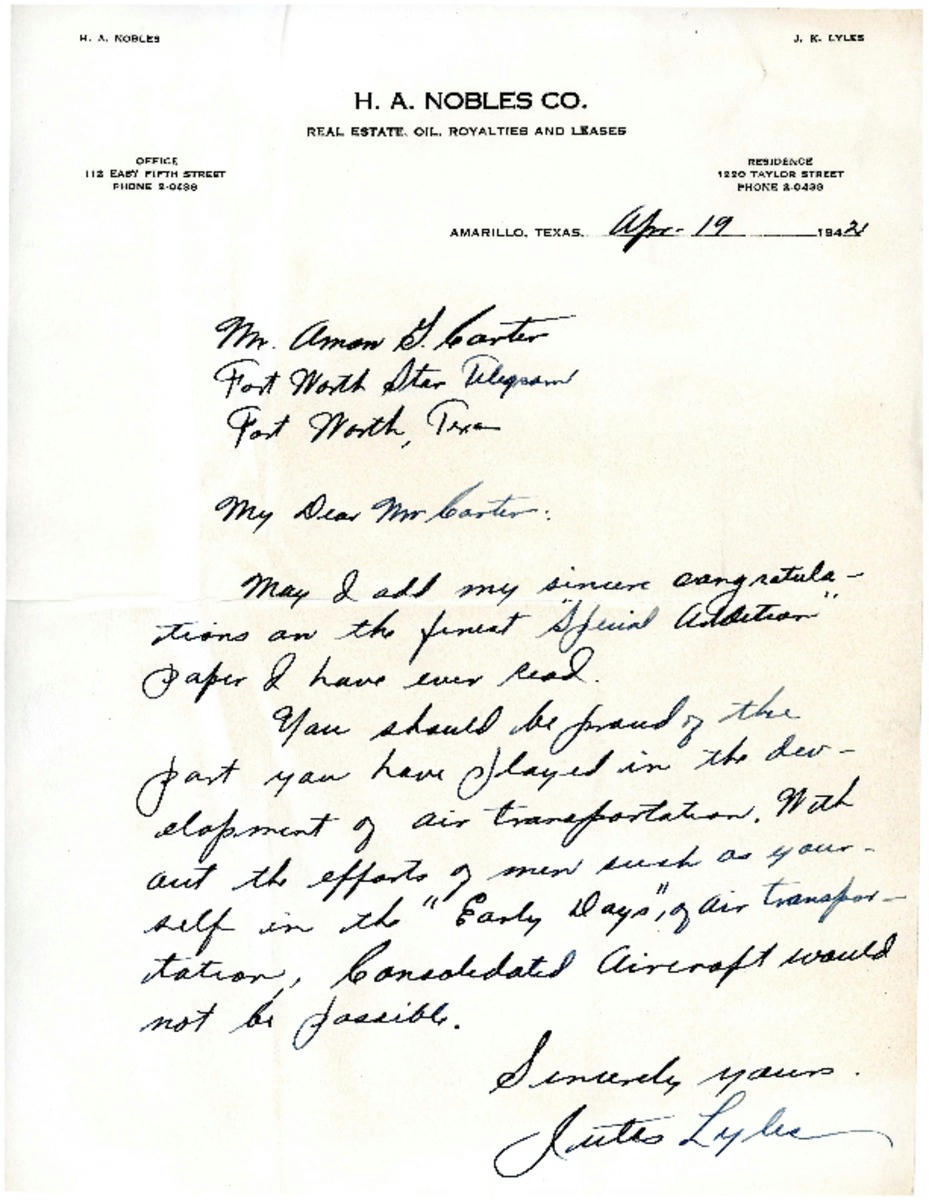 H. A. NOBLES
J. K. LYLES
H. A. NOBLES CO.
REAL ESTATE, OIL, ROYALTIES AND LEASES
OFFICE
112 EAST FIFTH STREET
PHONE 2-0438
RESIDENCE
1220 TAYLOR STREET
PHONE 2-0438
AMARILLO, TEXAS, Apr- 19 1942
Mr. Amon G. Carter
Fort Worth Star Telegram
Fort Worth, Texas
My Dear Mr Carter:
May I add my sincere congratula-
tions on the finest "Special Addition"
paper I have ever read.
You should be proud of the
part you have played in the dev-
elopment of air transportation. With
out the efforts of men such as your-
self in the "Early Days", of air transpor-
tation, Consolidated Aircraft would
not be possible.
Sincerely yours.
Lyles